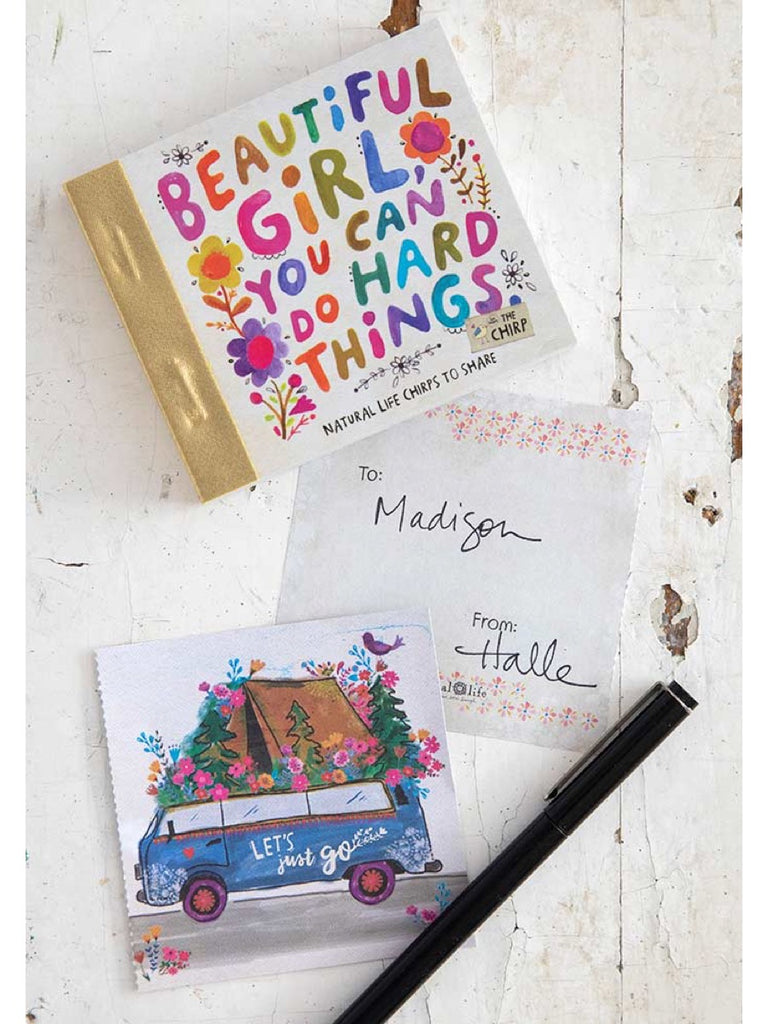 BEAUTIFUL
GIRL,
YOU CAN
DO HARD
THINGS.
THE
CHIRP
NATURAL LIFE CHIRPS TO SHARE
To:
Madison
From:
Halle
al life
LET'S
just go